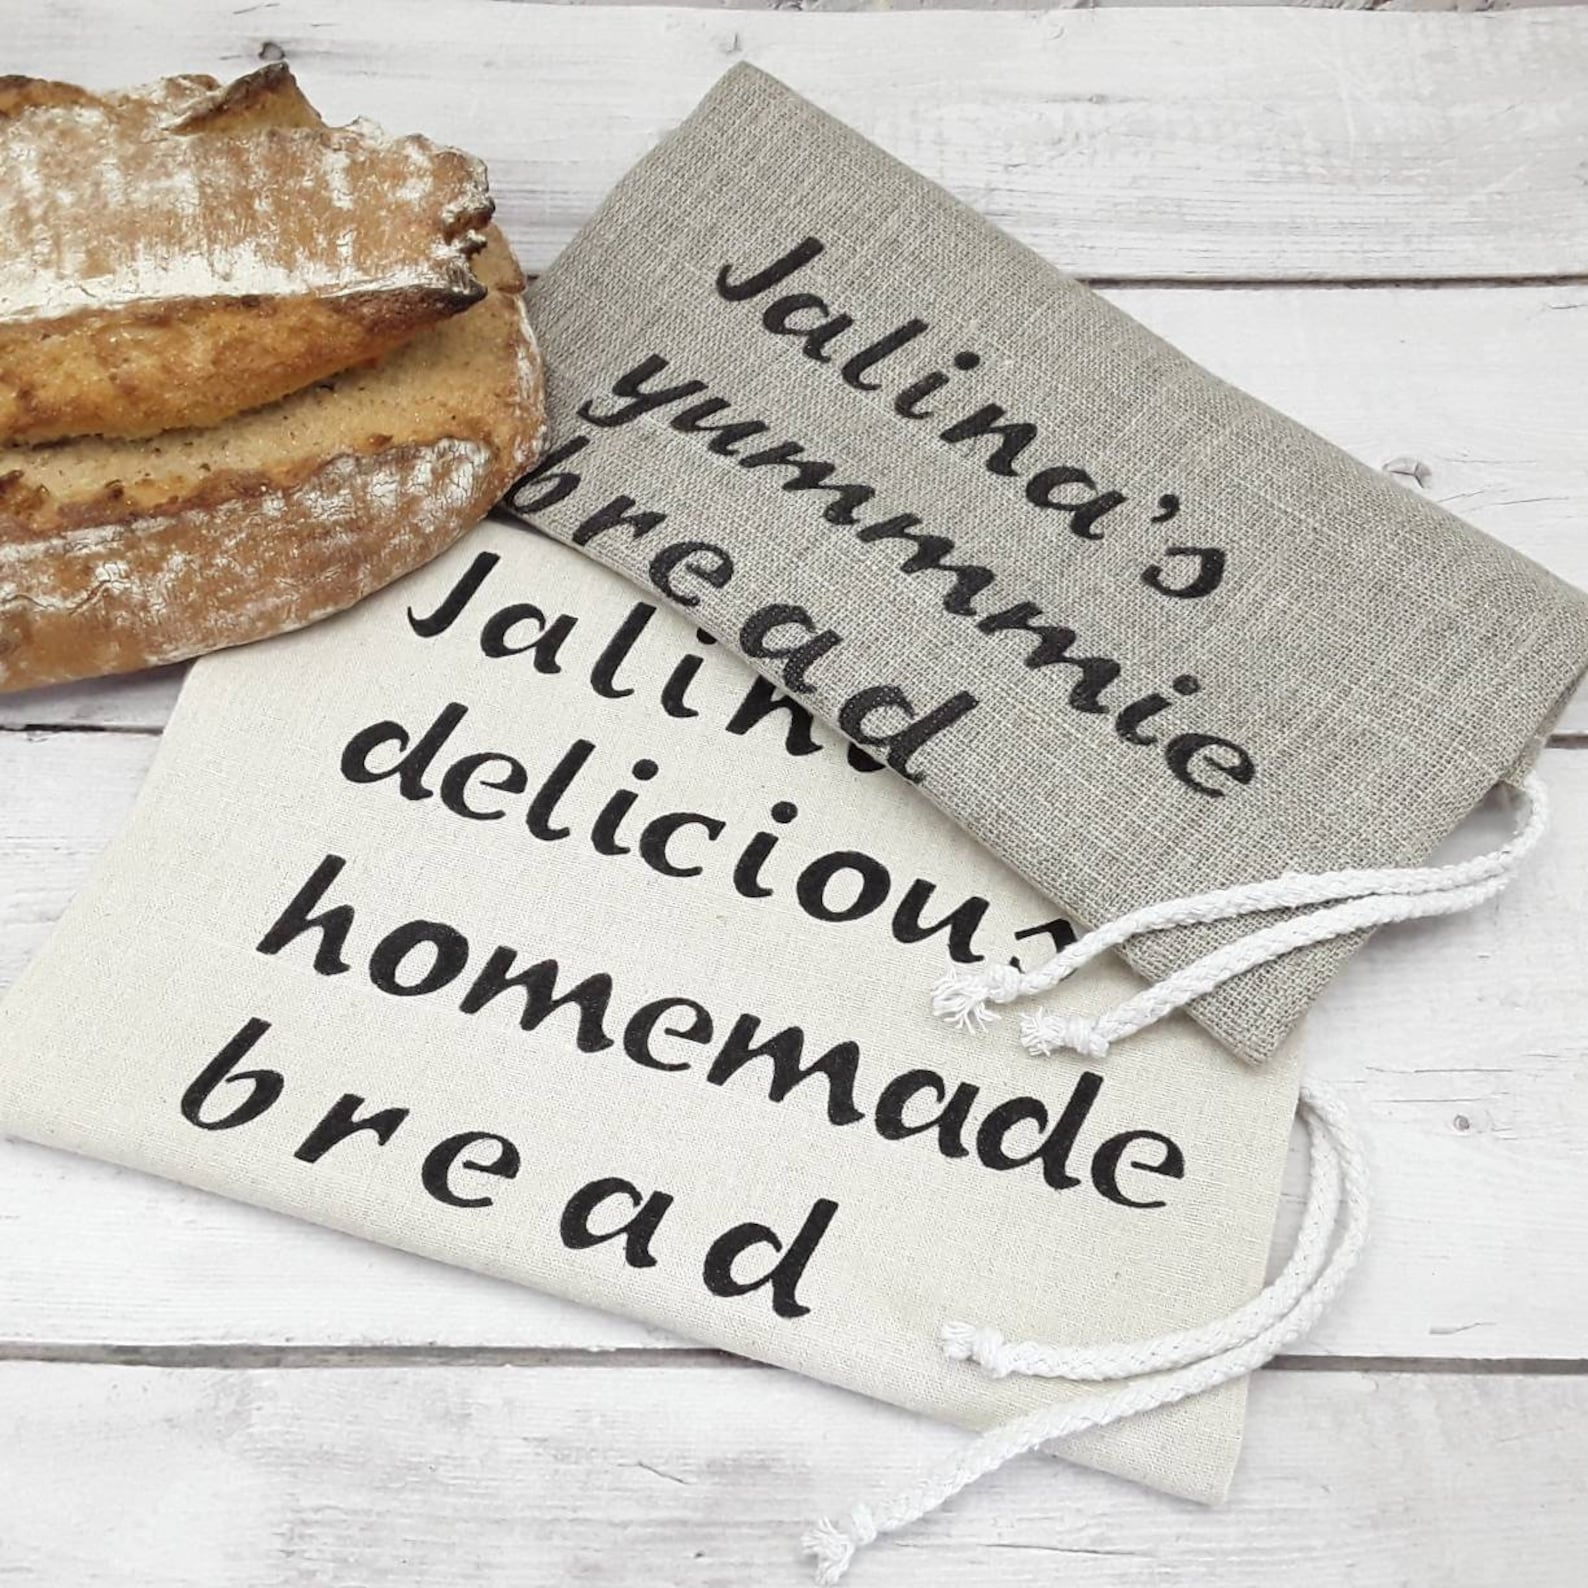 Jalina's
yummmie
bread
Jalina
delicious
homemade
bread